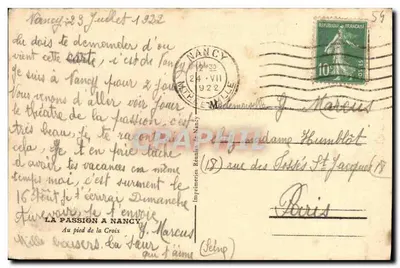 Nancy - 23 Juillet 1922
tu dois te demander d'où
vient cette carte, c'est de
Je suis à Nancy pour 2 jours
nous venons d'aller voir jouer
le théâtre de la passion c'est
très beau, je te
cela, je t'en prie tâche
d'avoir tes vacances en même
temps moi, c'est surement le
16 Août, je t'écrirai Dimanche
Au revoir, je t'envoie
Mille baisers. ta sœur
qui t'aime
Y. Marcus
LA PASSION A NANCY
Au pied de la Croix
NANCY
24 - VII
1922
RÉPUBLIQUE FRANÇAISE
10
54
Mademoiselle Y Marcus
madame Humblot
(18) rue des Fossés St Jacques 18
Paris
(Seine)
Delcampe